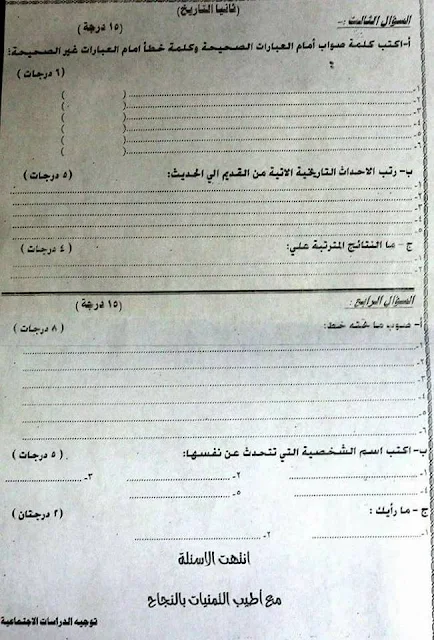 (ثانيا التاريخ)
السؤال الثالث :- (١٥ درجة)
أ- اكتب كلمة صواب أمام العبارات الصحيحة وكلمة خطأ امام العبارات غير الصحيحة:
(٦ درجات)
١- ( )
٢- ( )
٣- ( )
٤- ( )
٥- ( )
٦- ( )
ب- رتب الاحداث التاريخية الاتية من القديم الي الحديث: (٥ درجات)
١-
٢-
٣-
٤-
٥-
ج - ما النتائج المترتبة علي: (٤ درجات)
١-
٢-
السؤال الرابع : (١٥ درجة)
أ- صوب ما تحته خط: (٨ درجات)
١-
٢-
٣-
٤-
٥-
٦-
ب- اكتب اسم الشخصية التي تتحدث عن نفسها: (٥ درجات)
١- ٢- ٣-
٤- ٥-
ج - ما رأيك : (٢ درجتان)
١- ٢-
انتهت الاسئلة
مع أطيب التمنيات بالنجاح
توجيه الدراسات الاجتماعية